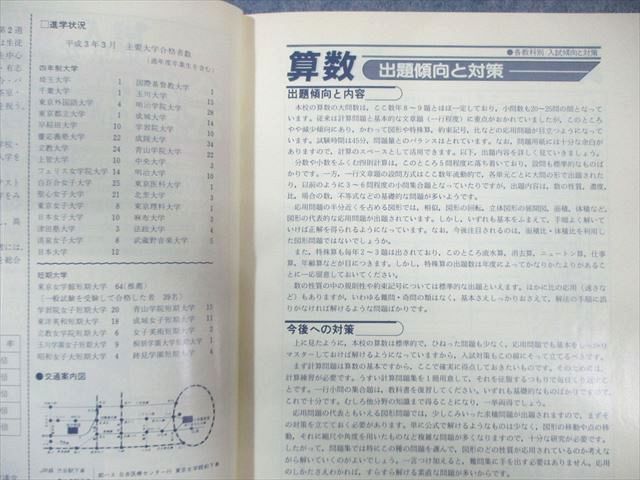 □進学状況
平成3年3月 主要大学合格者数
(過年度卒業生を含む)
四年制大学
埼玉大学 1
千葉大学 1
東京外国語大学 4
東京都立大学 1
早稲田大学 10
慶応義塾大学 22
立教大学 24
上智大学 10
フェリス女学院大学 14
白百合女子大学 25
聖心女子大学 21
東京女子大学 8
日本女子大学 10
津田塾大学 3
清泉女子大学 8
日本大学 12
国際基督教大学 1
玉川大学
明治学院大学
成城大学
学習院大学
成蹊大学 34
青山学院大学
中央大学
明治大学
東京医科大学 1
北里大学
東京理科大学 1
麻布大学
法政大学 4
武蔵野音楽大学 5
短期大学
東京女学館短期大学 64(推薦)
(一般試験を受験して合格した者 39名)
学習院女子短期大学 20
東洋英和短期大学 18
立教女学院短期大学 6
玉川学園女子短期大学 9
昭和女子大短期大学 4
青山学院短期大学
成城大短期大学 11
女子美術短期大学 2
桐朋学園大短期大学 1
跡見学園短期大学
●交通案内図
●各教科別/入試傾向と対策
算数 出題傾向と対策
出題傾向と内容
本校の算数の大問数は、ここ数年8～9題とほぼ一定しており、小問数も20～25問の間となって
います。従来は計算問題と基本的な文章題(一行程度)に重点がおかれていましたが、このところ
やや減少傾向にあり、かわって図形や特殊算、約束記号、比などの応用問題が目立つようになって
います。試験時間は45分、問題量とのバランスはとれています。なお、問題用紙には十分な余白が
ありますので、計算のスペースとして活用できます。以下、出題内容を詳しく見ていきましょう。
分数や小数をふくむ四則計算は、このところ5問程度に落ち着いており、設問も標準的なものば
かりです。一方、一行文章題の設問方式はここ数年流動的で、各単元ごとに大問の形で出題された
り、以前のように3～6問程度の小問集合題となっていたりですが、出題内容は、数の性質、濃度、
比、場合の数、不等式などの基礎的な問題が多いようです。
応用問題の半分近くを占める図形では、相似、図形の回転、立体図形の展開図、面積、体積など、
図形の代表的な応用問題が出題されています。しかし、いずれも基本をふまえて、手順よく解いて
いけば正解を得られるようになっています。なお、今後注目されるのは、面積比・体積比を利用し
た図形問題ではないでしょうか。
また、特殊算も毎年2～3題は出されており、このところ流水算、消去算、ニュートン算、仕事
算、年齢算などが目につきます。しかし、特殊算の出題数は年度によってかなりかたよりがあること
に一応留意しておいてください。
数の性質の中の規則性や約束記号については標準的な出題といえます。ほかに比の応用(速さな
ど)もありますが、いわゆる難問・奇問の類はなく、基本さえしっかりおさえて、解法の手順に誤
りがなければ解けるような問題ばかりです。
今後への対策
上に見たように、本校の算数は標準的で、ひねった問題も少なく、応用問題でも基本をしっかり
マスターしておけば解けるようになっていますから、入試対策もこの線にそって立てるべきです。
まず計算問題は算数の基本ですから、ここで確実に得点しておきたいものです。そのためには、
計算練習が必要です。うすい計算問題集を1冊用意して、それを征服するつもりで毎日くり返すこと
です。一行小問の集合題は、教科書を復習してください。いずれも基礎的なものばかりですので、
これで十分です。むしろ他分野の知識まで得ることになり、一挙両得でしょう。
応用問題の代表ともいえる図形問題では、少しこみいった求積問題が出題されますので、まずそ
の対策を立てておく必要があります。単に公式で解けるようなものは少なく、図形の移動や点の移
動、それに縮尺や角度を用いたものなど複雑な問題が多くなりますので、十分な研究が必要です。
したがって、問題集では特にこの種の問題を選んで、図形のどの性質が応用されているのか考えな
がら解いていくのがよいでしょう。一言つけ加えると、難問集に手を出す必要はありません。応用
のしかたさえわかれば、すらすら解ける素直な問題が多いからです。